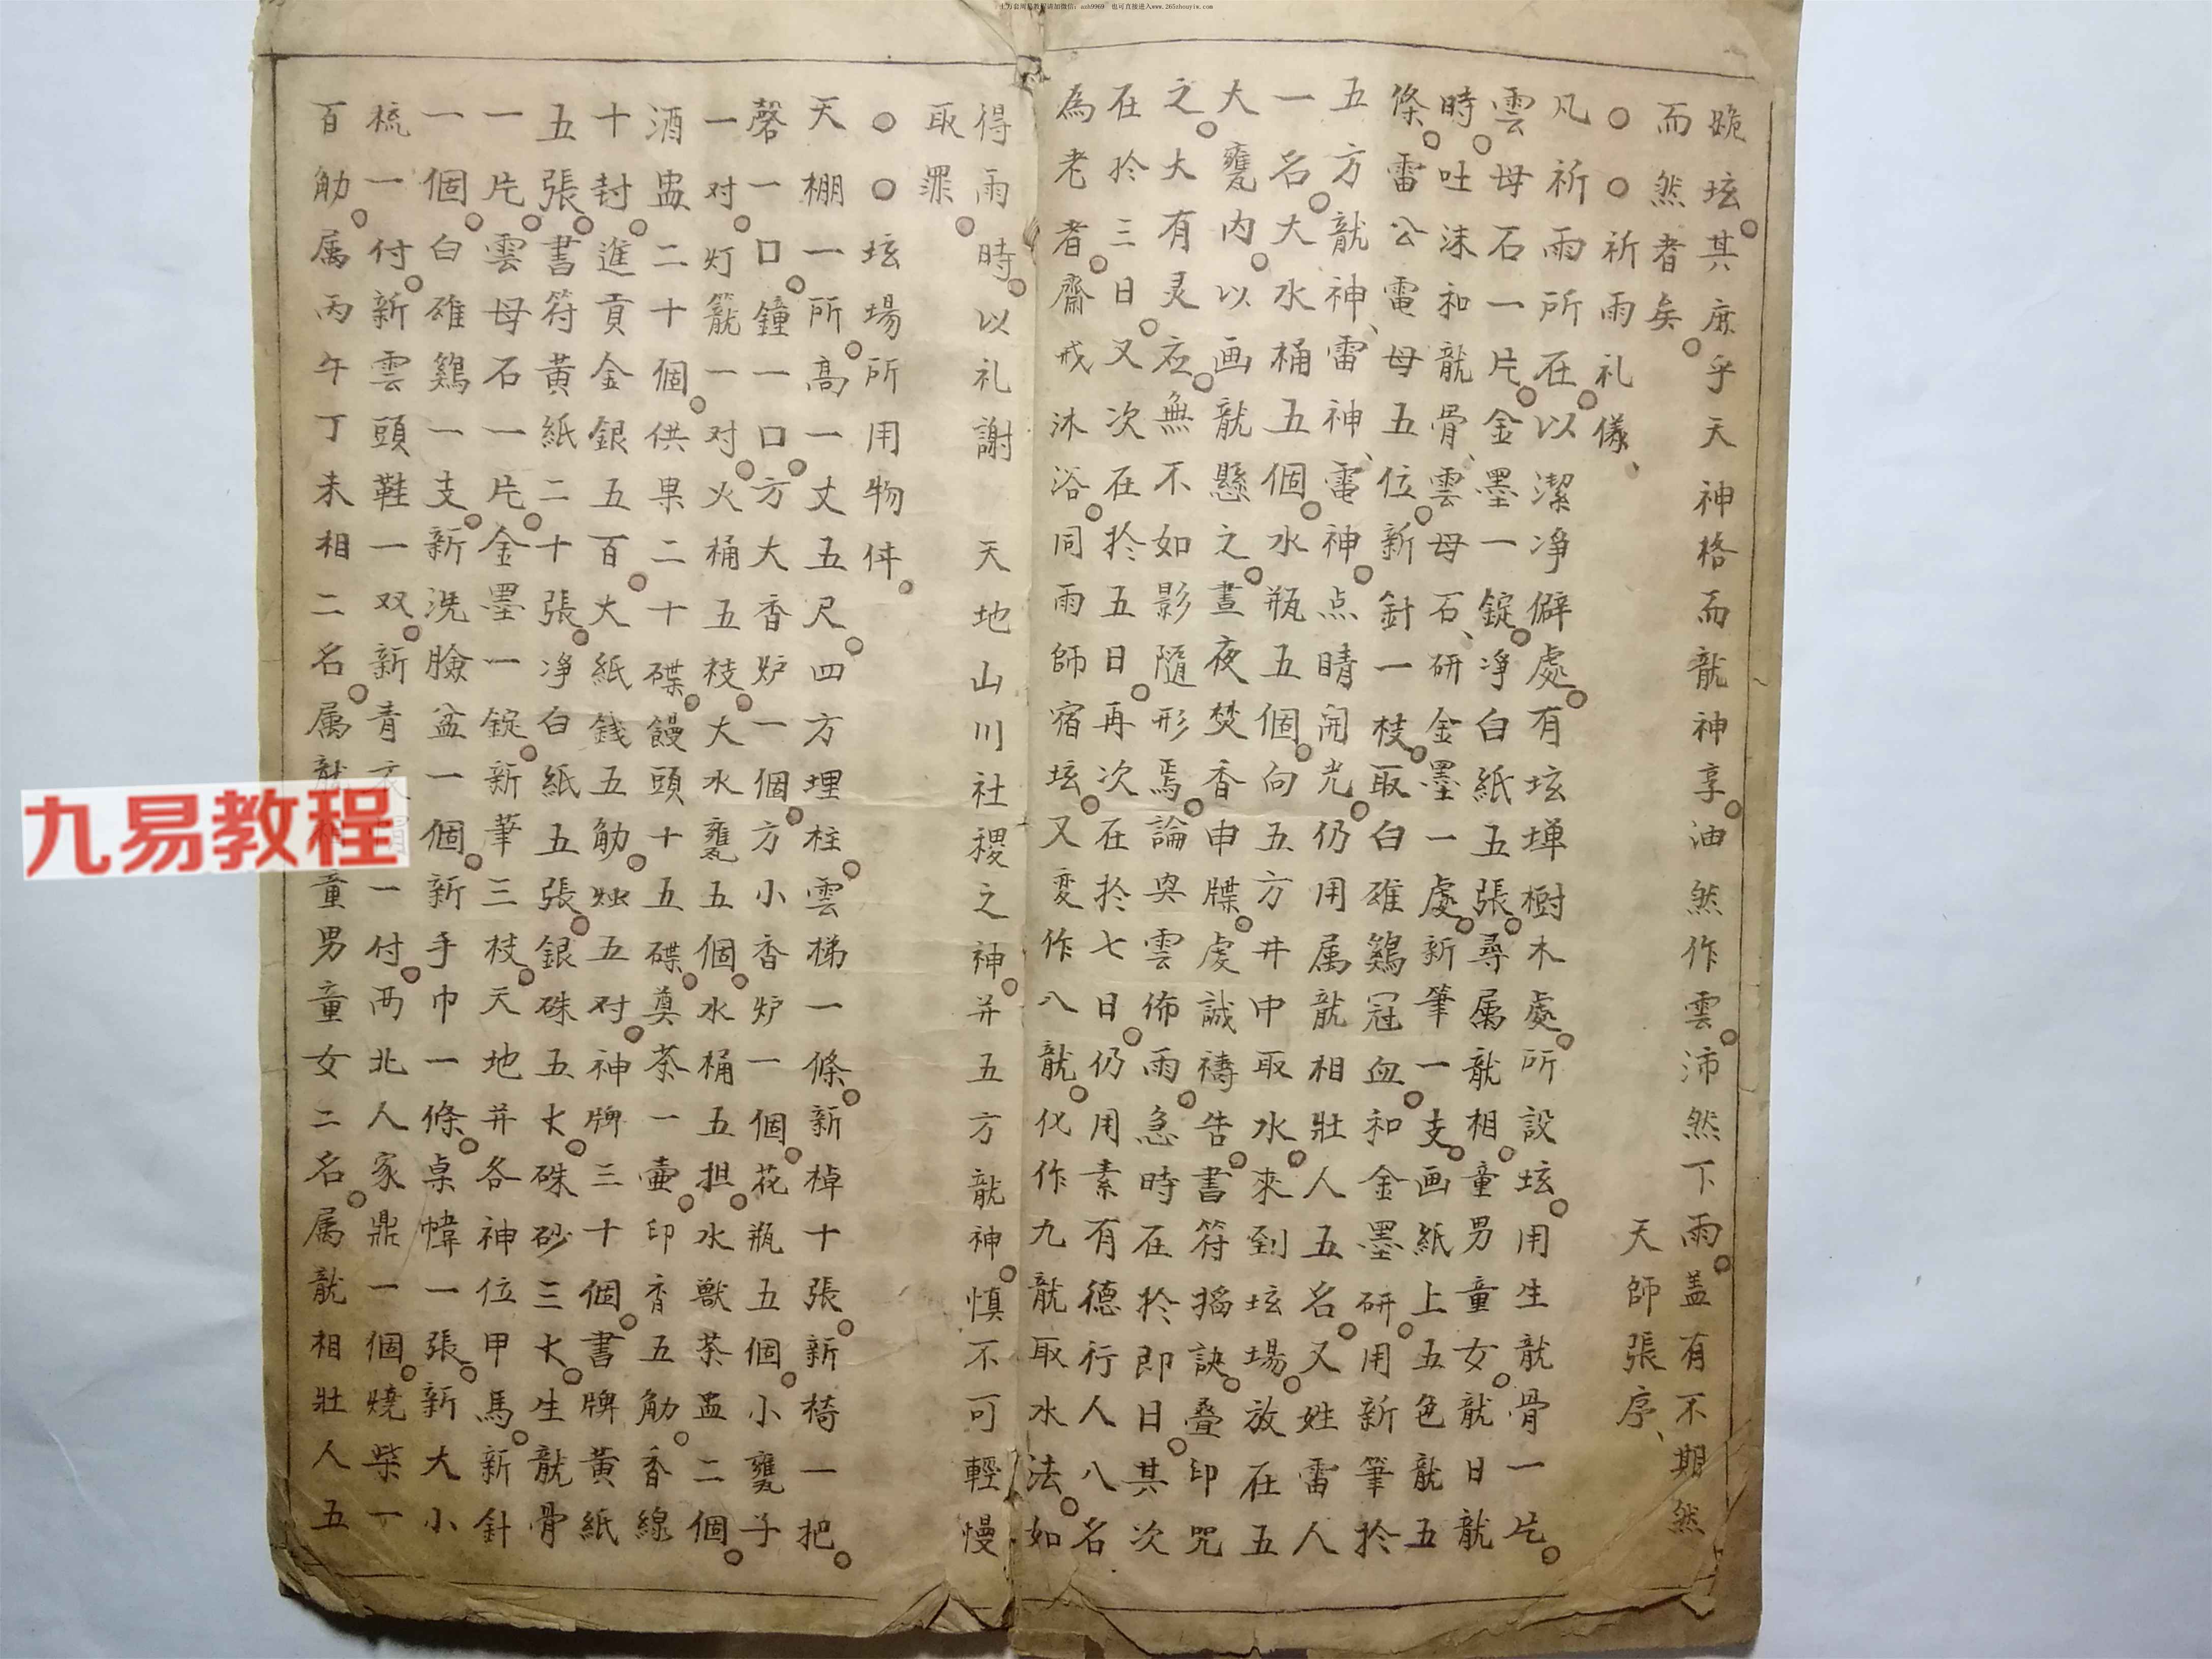 上万套周易教程请加微信：azh9969 也可直接进入www.265zhouyiw.com
跪垓其庶乎天神格而龍神享油然作雲沛然下雨盖有不期然
而然者矣 天師張序
○○祈雨礼儀
凡祈雨所在以潔净僻處有垓墠樹木處所設垓用生龍骨一片
雲母石一片金墨一錠净白紙五張尋属龍相童男童女就日龍
時吐沫和龍骨雲母石研金墨一處新筆一支画紙上五色龍五
條雷公電母五位新針一枝取白雄鷄冠血和金墨研用新筆於
五方龍神雷神電神点睛開光仍用属龍相壯人五名又姓雷人
一名大水桶五個水瓶五個向五方井中取水來到垓場放在五
大甕内以画龍懸之晝夜焚香申牒虔誠禱告書符搯訣叠印咒
之大有灵应無不如影隨形焉論與雲佈雨急時在於即日其次
在於三日又次在於五日再次在於七日仍用素有德行人八名
為老者齋戒沐浴同雨師宿垓又变作八龍化作九龍取水法如
得雨時以礼謝 天地山川社稷之神并五方龍神慎不可輕慢
取罪
○○垓場所用物件
天棚一所高一丈五尺四方埋柱雲梯一條新棹十張新椅一把
磬一口鐘一口方大香炉一個方小香炉一個花瓶五個小甕子
一对灯籠一对火桶五枝大水甕五個水桶五担水獸茶盅二個
酒盅二十個供果二十碟饅頭十五碟奠茶一壷印香五觔香線
十封進貢金銀五百大紙錢五觔烛五对神牌三十個書牌黃紙
五張書符黃紙二十張净白紙五張銀硃五大硃砂三大生龍骨
一片雲母石一片金墨一錠新筆三枝天地并各神位甲馬新針
一個白雄鷄一支新洗臉盆一個新手巾一條桌幃一張新大小
梳一付新雲頭鞋一双新青衣一付西北人家鼎一個燒柴一
百觔属丙午丁未相二名属龍相童男童女二名属龍相壯人五
九易教程